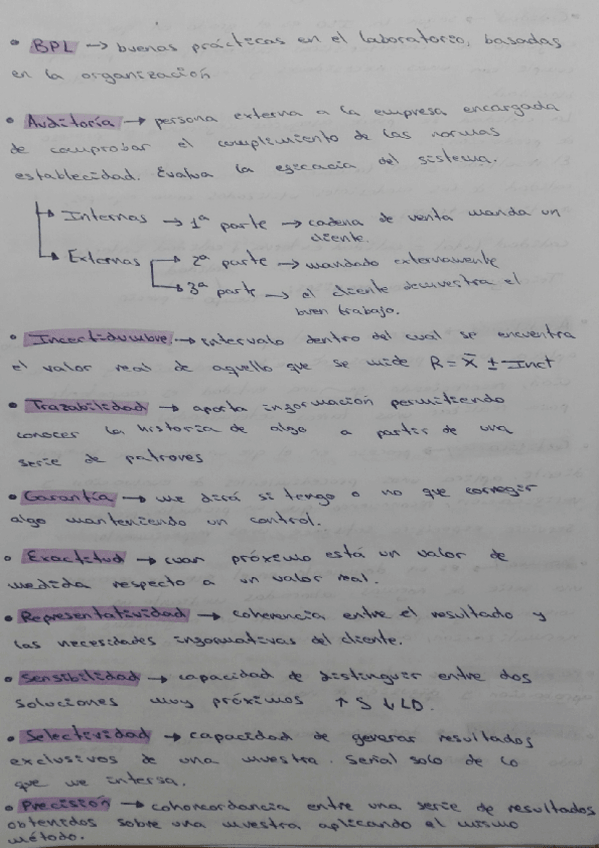 • BPL → buenas prácticas en el laboratorio, basadas
en la organización
• Auditoría → persona externa a la empresa encargada
de comprobar el cumplimiento de las normas
establecidad. Evalua la eficacia del sistema.
→ Internas → 1ª parte → cadena de venta manda un
cliente.
→ Externas → 2ª parte → mandado externamente
→ 3ª parte → el cliente demuestra el
buen trabajo.
• Incertidumbre → intervalo dentro del cual se encuentra
el valor real de aquello que se mide R = X̄ ± Inct
• Trazabilidad → aporta información permitiendo
conocer la historia de algo a partir de una
serie de patrones
• Garantía → me dirá si tengo o no que corregir
algo manteniendo un control.
• Exactitud → cuan próximo está un valor de
medida respecto a un valor real.
• Representatividad → coherencia entre el resultado y
las necesidades informativas del cliente.
• Sensibilidad → capacidad de distinguir entre dos
soluciones muy próximos ↑ S ↓ LD.
• Selectividad → capacidad de generar resultados
exclusivos de una muestra. Señal solo de lo
que me intersa.
• Precisión → cohoncordancia entre una serie de resultados
obtenidos sobre una muestra aplicando el mismo
método.